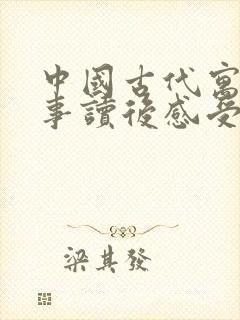 中國古代寓
事讀後感受
梁其發